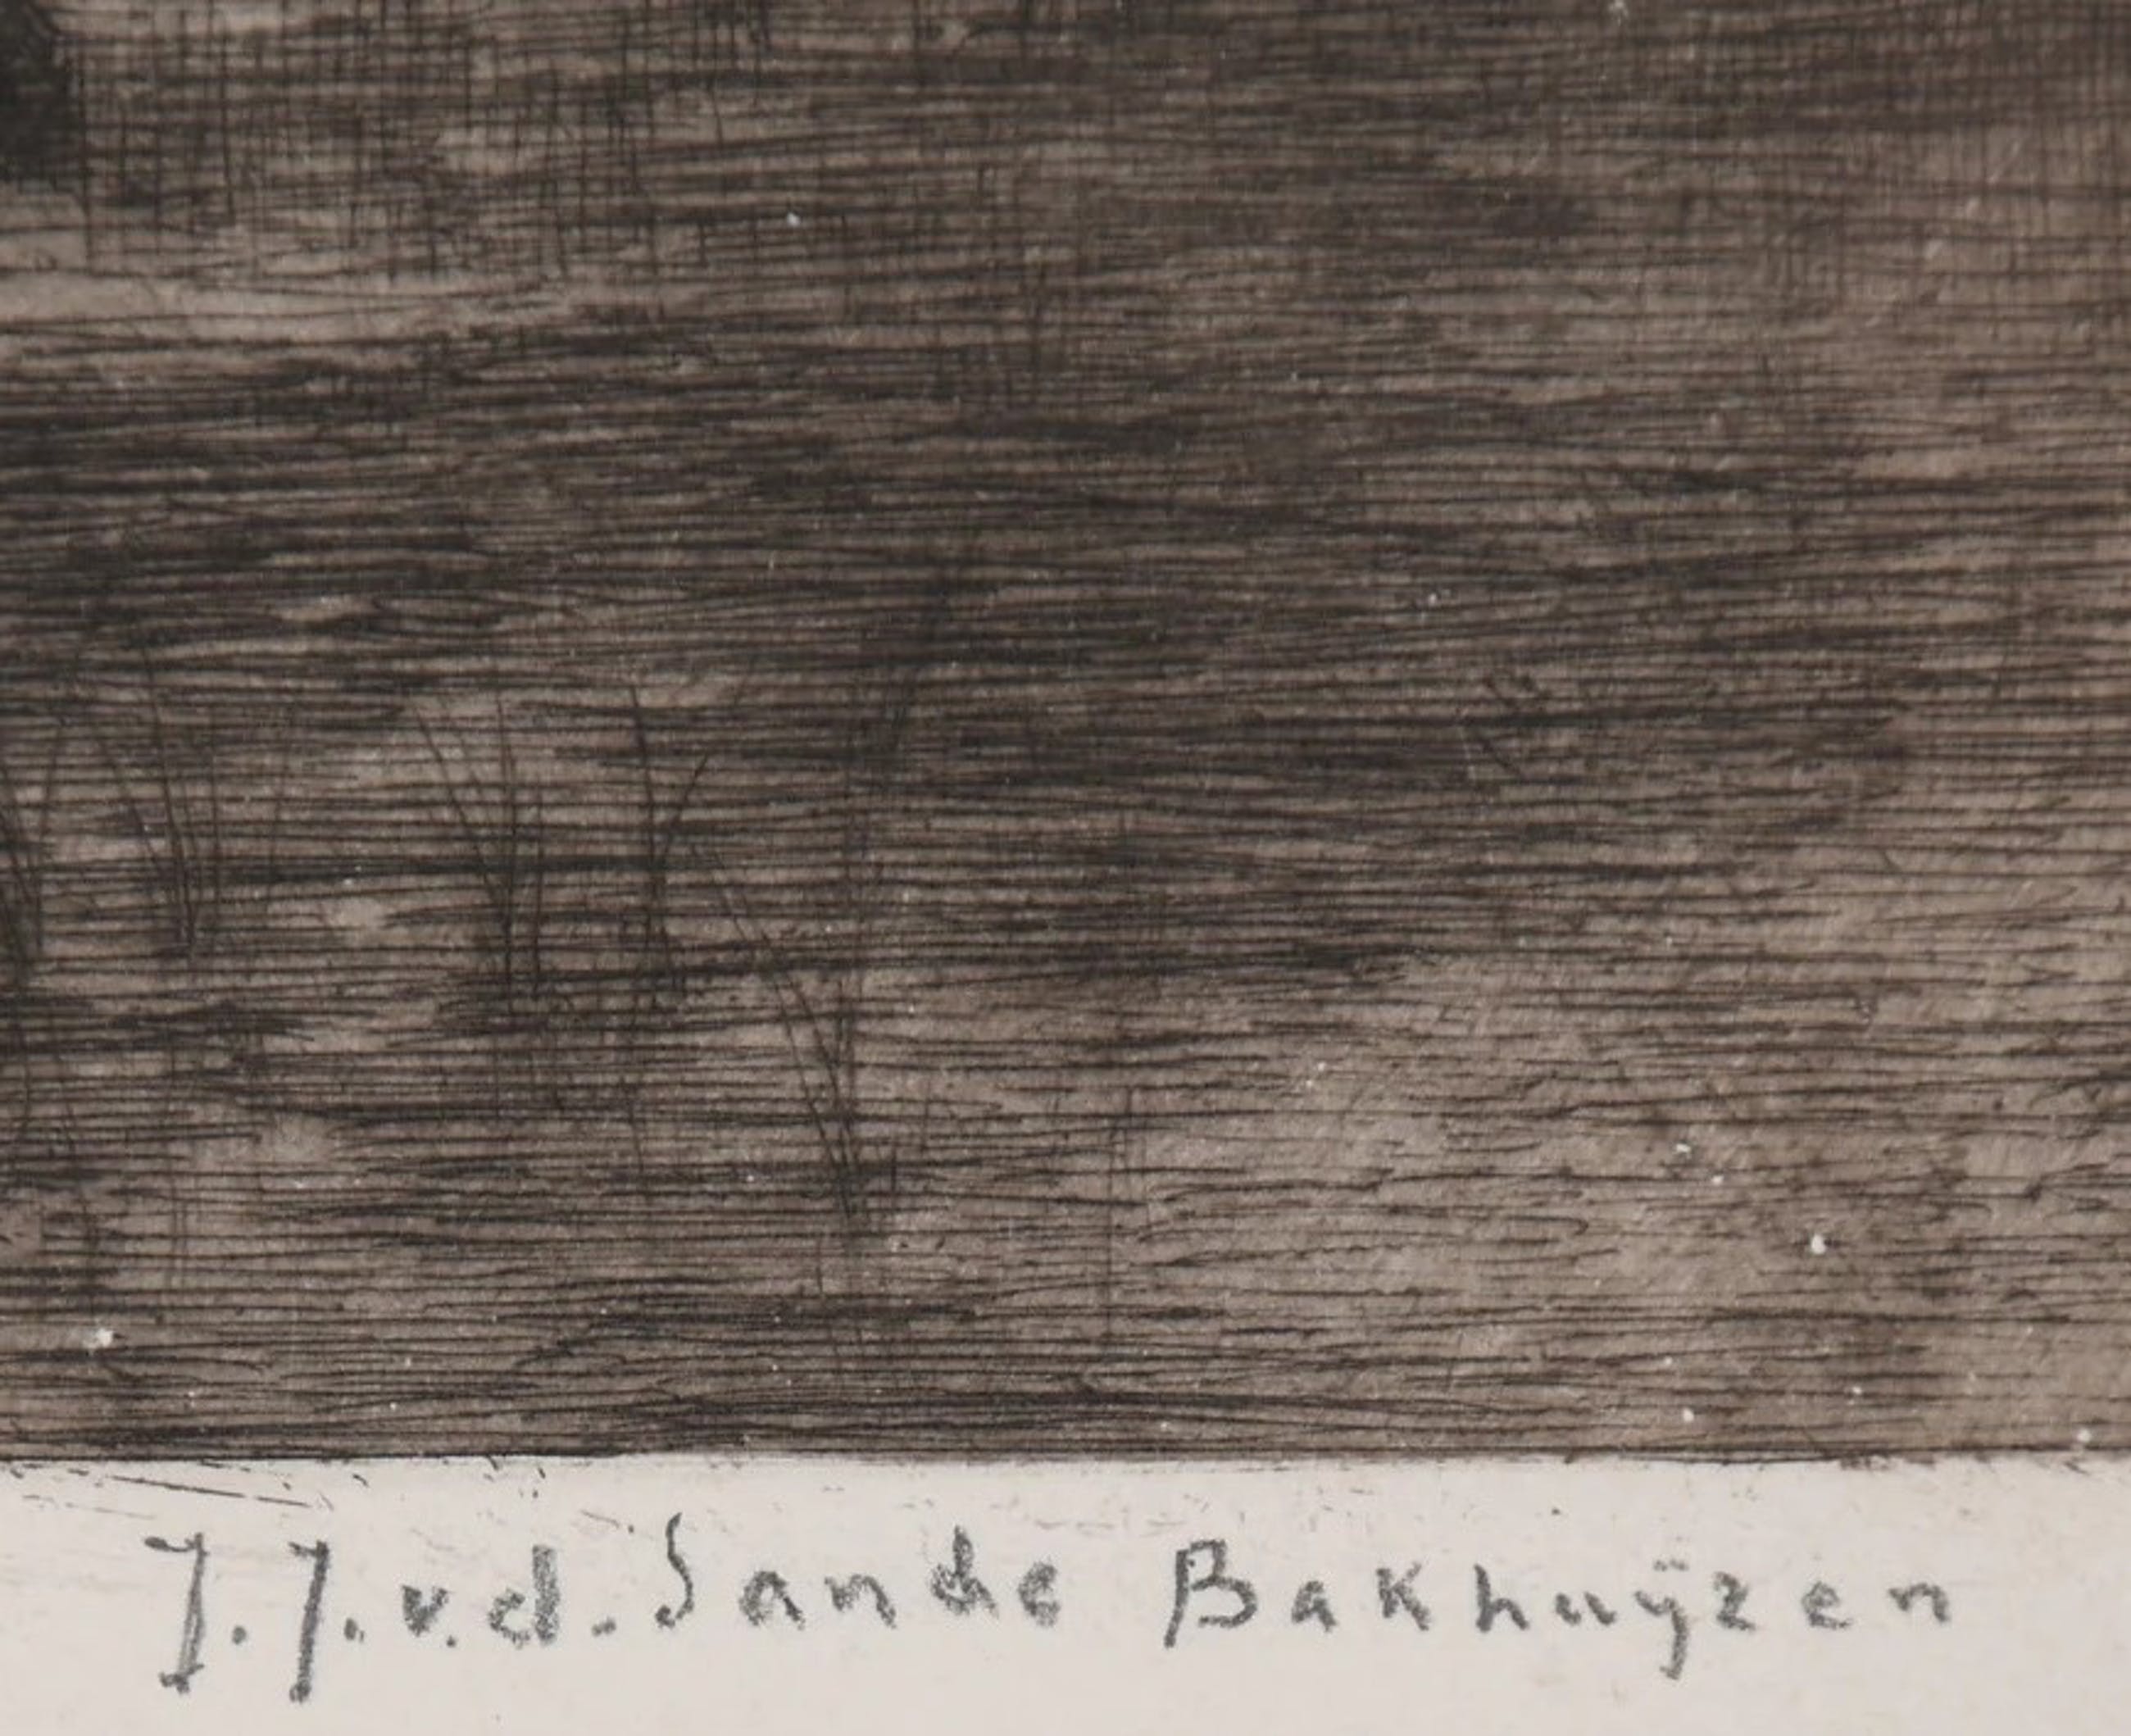 J.J.v.d.Sande Bakhuÿzen